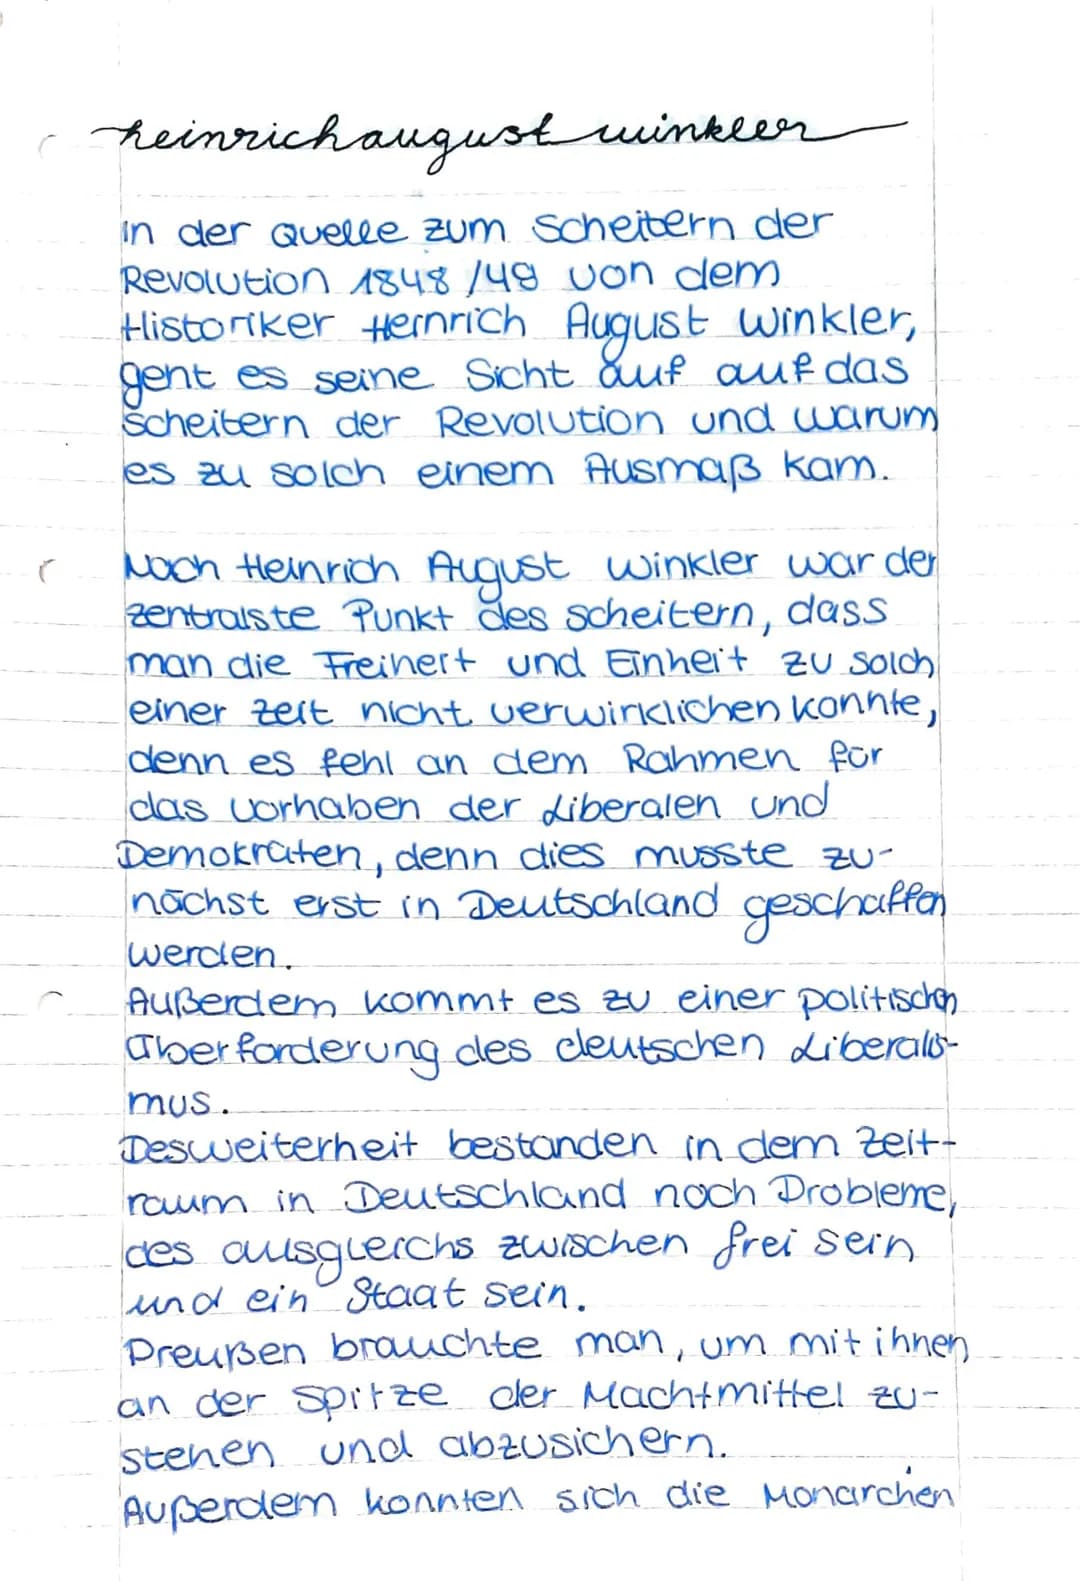 heinrich august winkler
in der Quelle zum Scheitern der
Revolution 1848/49 von dem
Historiker Heinrich August Winkler,
geht es seine Sicht auf auf das
Scheitern der Revolution und warum
es zu solch einem Ausmaß kam.
Nach Heinrich August Winkler war der
zentralste Punkt des scheitern, dass
man die Freiheit und Einheit zu solch
einer Zeit nicht verwirklichen konnte,
denn es fehl an dem Rahmen für
das vorhaben der Liberalen und
Demokraten, denn dies musste zu-
nächst erst in Deutschland geschaffen
werden.
Außerdem kommt es zu einer politischen
Überforderung des deutschen Liberalis-
mus.
Desweiterheit bestanden in dem Zeit-
raum in Deutschland noch Probleme,
des ausgleichs zwischen frei sein
und ein Staat sein.
Preußen brauchte man, um mit ihnen
an der Spitze der Machtmittel zu-
stehen und abzusichern.
Außerdem konnten sich die Monarchen